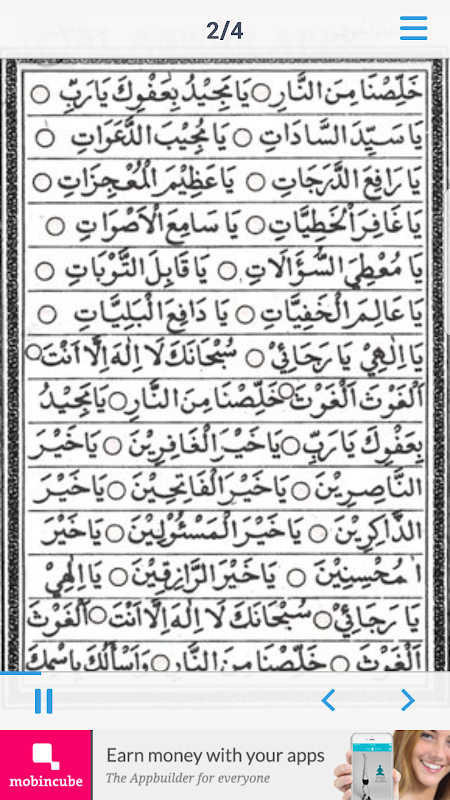 2/4
خَلِّصْنَا مِنَ النَّارِ ○ يَا مَجِيْدُ بِعَفْوِكَ يَارَبِّ ○
يَا سَيِّدَ السَّادَاتِ ○ يَا مُجِيْبَ الدَّعَوَاتِ ○
يَا رَافِعَ الدَّرَجَاتِ ○ يَا عَظِيْمَ الْمُعْجِزَاتِ ○
يَا غَافِرَ الْخَطِيَّاتِ ○ يَا سَامِعَ الْاَصْرَاتِ ○
يَا مُعْطِيَ السُّؤَالَاتِ ○ يَا قَابِلَ التَّوْبَاتِ ○
يَا عَالِمَ الْخَفِيَّاتِ ○ يَا دَافِعَ الْبَلِيَّاتِ ○
يَا اِلٰهِيْ يَا رَجَائِيْ ○ سُبْحَانَكَ لَا اِلٰهَ اِلَّا اَنْتَ ○
اَلْغَوْثَ اَلْغَوْثَ ○ خَلِّصْنَا مِنَ النَّارِ ○ يَا مَجِيْدُ
بِعَفْوِكَ يَا رَبِّ ○ يَا خَيْرَ الْغَافِرِيْنَ ○ يَا خَيْرَ
النَّاصِرِيْنَ ○ يَا خَيْرَ الْفَاتِحِيْنَ ○ يَا خَيْرَ
الذَّاكِرِيْنَ ○ يَا خَيْرَ الْمَسْئُوْلِيْنَ ○ يَا خَيْرَ
الْمُحْسِنِيْنَ ○ يَا خَيْرَ الرَّازِقِيْنَ ○ يَا اِلٰهِيْ
يَا رَجَائِيْ ○ سُبْحَانَكَ لَا اِلٰهَ اِلَّا اَنْتَ ○ اَلْغَوْثَ
اَلْغَوْثَ ○ خَلِّصْنَا مِنَ النَّارِ ○ وَاَسْأَلُكَ بِاسْمِكَ
Earn money with your apps
The Appbuilder for everyone
mobincube